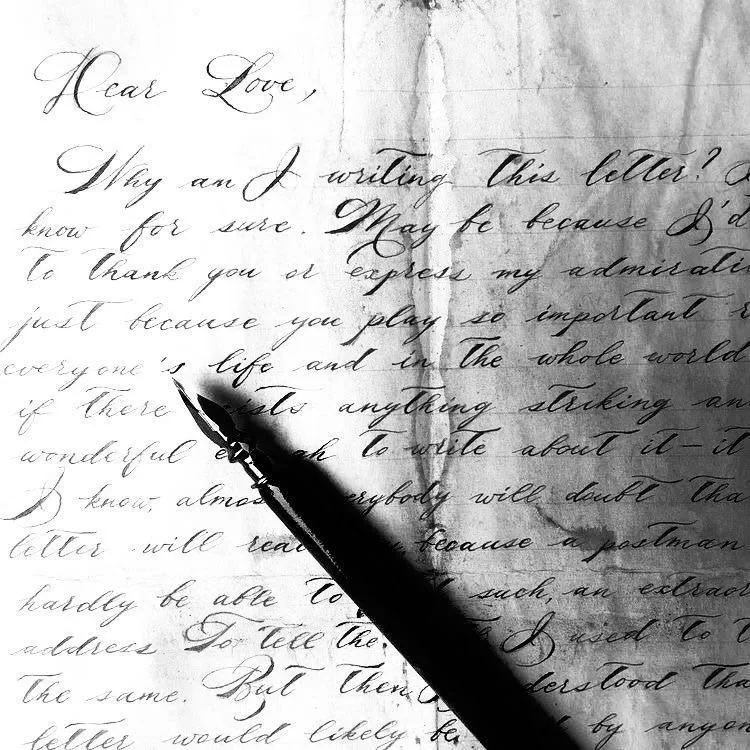 Dear Love,
Why am I writing this letter? I
know for sure. May be because I'd
to thank you or express my admirati
just because you play so important r
everyone's life and in the whole world
if there exists anything striking an
wonderful to write about it – it
I know, almost everybody will doubt tha
letter will because a postman
hardly be able to such, an extraor
address. To tell the I used to t
the same. But then I understood tha
letter would likely be by anyon